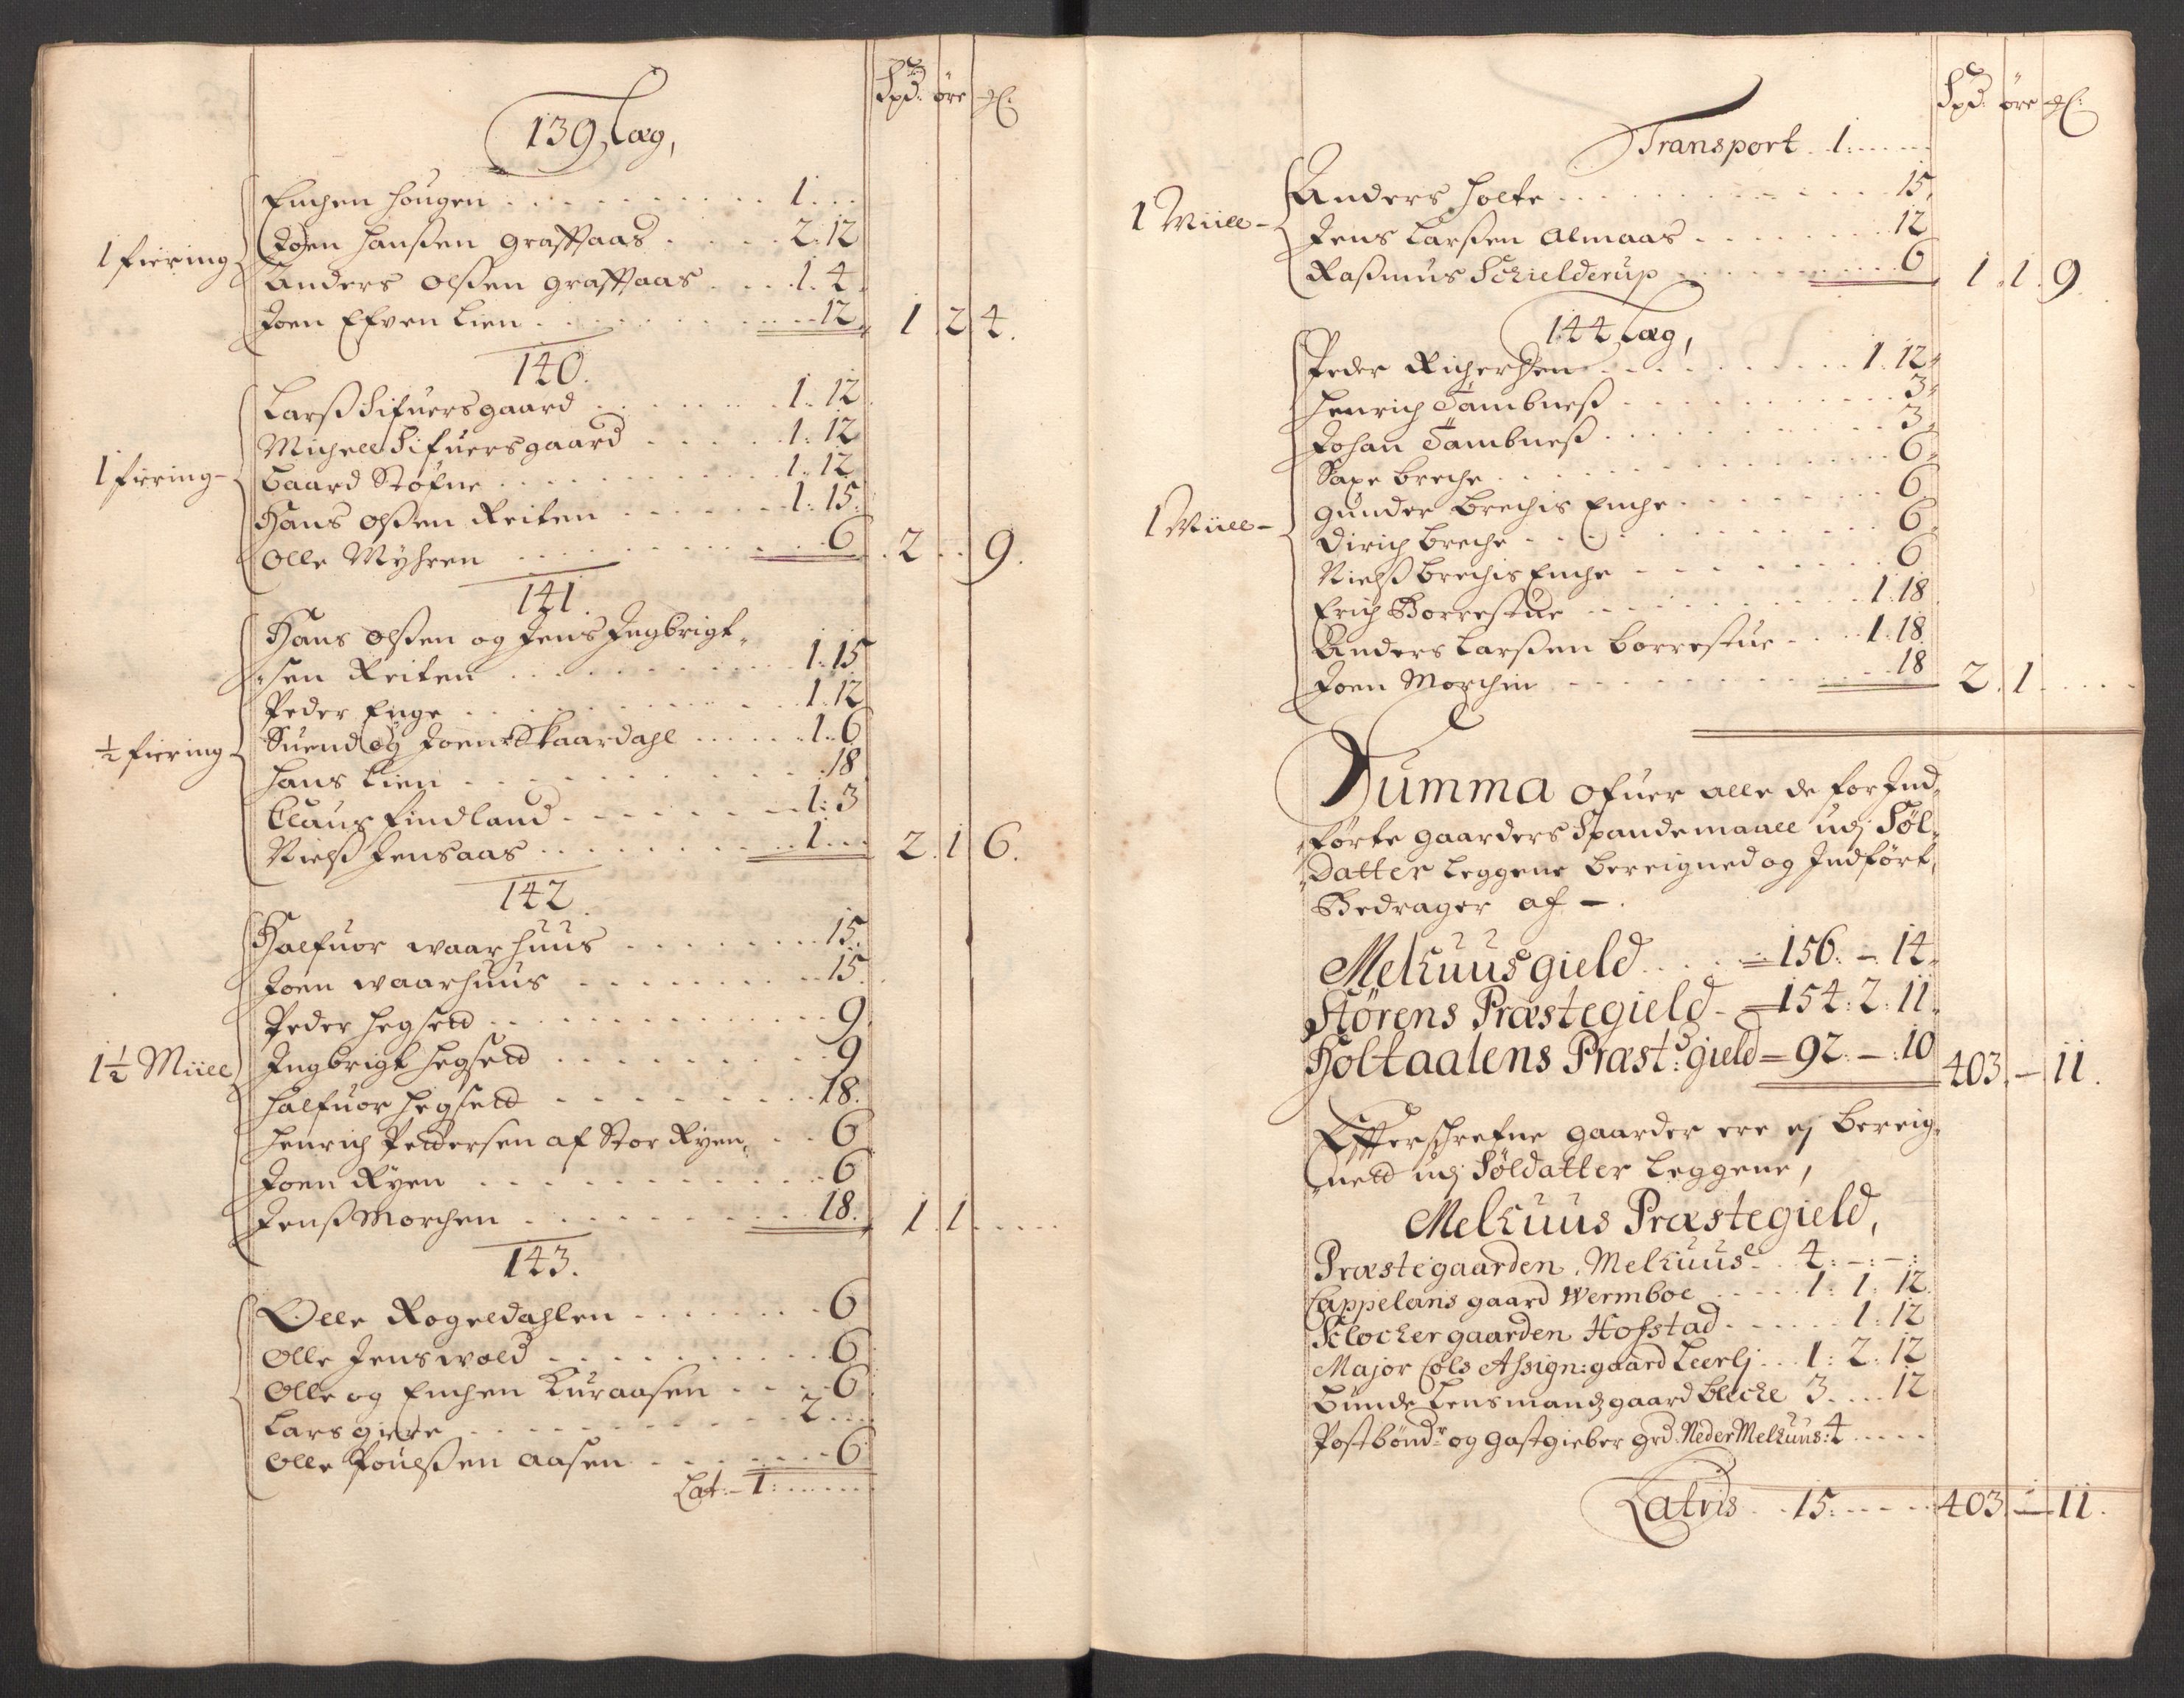 Spd: öre
139 Læg,
1 fiering
Enchen Hougen . . . 1 . .
Joen Hanßen Graffaas . . . 2: 12
Anders Olßen Graffaas . . . 1. 4
Joen Efven Lien . . . 12 1. 2 4.
140.
1 fiering
Larß Sifuersgaard . . . 1: 12
Michell Sifuersgaard . . . 1: 12
Baard Støfne . . . 1. 12
Hans Olßen Reiten . . . 1: 15
Olle Myhren . . . 6 2 . . 9.
141.
½ fiering
Hans Olßen og Jens Ingbrigt-
sen Reiten . . . 1: 15
Peder Enge . . . 1. 12
Suend og Joen Skaardahl . . . 1. 6
Hans Lien . . . 18
Claus Findland . . . 1: 3
Nielß Jensaas . . . 1 . . 2. 1 6.
142
1½ Müell
Halfuor Waarhuus . . . 15.
Joen Waarhuus . . . 15.
Peder Hegsett . . . 9
Ingbrigt Hegsett . . . 9
Halfuor Hegsett . . . 18.
Henrich Pettersen af Stor Ryen . . 6
Joen Ryen . . . 6
Jenß Morchen . . . 18. 1. 1 . . .
143.
Olle Rogeldahlen . . . 6
Olle Jenswold . . . 6
Olle og Enchen Kuraasen . . . 6
Lars Giere . . . 2 . .
Olle Poulßen Aasen . . . 6
Lat: 1: . . .
Spd: öre
Transport . 1: . . .
1 Müell
Anders Holte . . . 15,
Jens Larßen Almaas . . . 12
Raßmus Schielderup . . . 6 1. 1. 9
144 Læg,
1 Müell
Peder Richertsen . . . 1. 12
Henrich Tambneß . . . 3
Johan Tambneß . . . 3
Saxe Breche . . . 6
Gunder Brechis Enche . . . 6
Dirich Breche . . . 6
Nielß Brechis Enche . . . 6
Erich Borrestue . . . 1. 18
Anders Larßen Borrestue . . . 1. 18
Joen Morchen . . . 18 2. 1 . . .
Summa ofuer alle de for Ind-
førte gaarders Spandemaall udj Søl-
datter Leggene bereigned og Indført,
Bedrager af —
Melhuus gield . . . 156. — 14
Störens Præstegield - 154: 2: 11.
Holtaalens Præst: gield = 92. —. 10 403. — 11.
Efterschrefne gaarder ere ej bereig-
nett udj Søldatter Leggene,
Melhuus Præstegield,
Præstegaarden Melhuus . . 4: —: —:
Cappelans gaard Wermboe . . . 1: 1. 12
Klocker gaarden Hofstad . . . 1. 12
Major Cols Assign: gaard Leerlj . . 1: 2: 12
Bunde Lensmandz gaard Blecke 3 . . . 12
Postbønd: og Gastgieber grd. Neder Melhuus: 4 . . .
Latris . . 15: . . . 403 — 11.